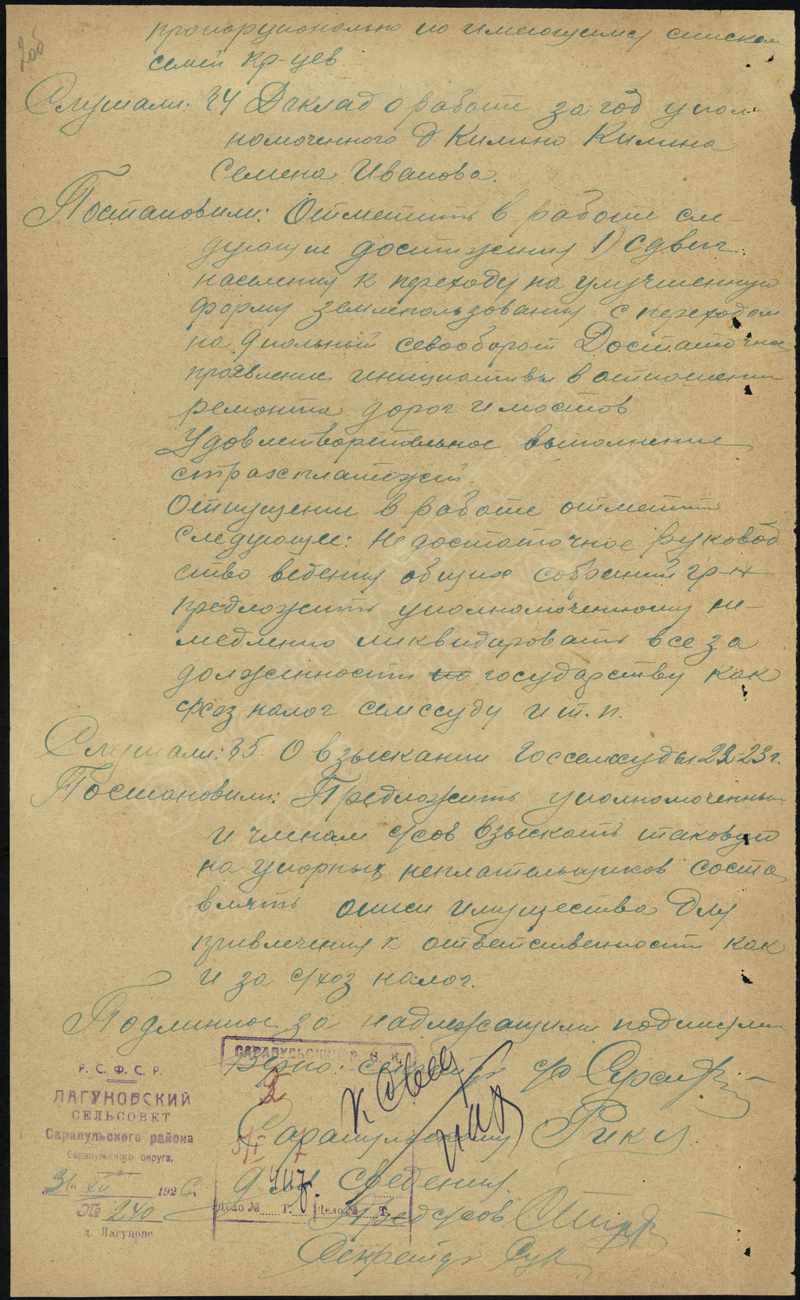 пропорционально по имеющимся спискам
семей Кр-цев
Слушали: 34 Доклад о работе за год упол-
номоченного д Килино Килина
Семена Иванова.
Постановили: Отметить в работе сле-
дующие достижения 1) Сдвиг
населения к переходу на улучшенную
форму землепользования с переходом
на 9 польный севооборот Достаточное
проявление инициативы в отношении
ремонта дорог и мостов
Удовлетворительное выполнение
страхплатежей.
Отпущении в работе отметить
следующее: Недостаточное руковод
ство ведения общих собраний гр-н
предложить уполномоченному не-
медленно ликвидировать все за
долженности государству как
с/хоз налог семссуду и т.п.
Слушали: 35. О взыскании Госсемссуды 22 23 г.
Постановили: Предложить уполномоченным
и членам с/сов взыскать таковую
на упорных неплательщиков соста
влять описи имущества для
привлечения к ответственности как
и за с/хоз налог.
Подлинное за надлежащими подписями
САРАПУЛЬСКИЙ Р. И. К.
Верно: с/с
К
Р. С. Ф. С. Р.
ЛАГУНОВСКИЙ
СЕЛЬСОВЕТ
Сарапульского района
Сарапульского округа.
Сарапульскому Рику
31 XII 1926 г.
для сведения
№ 240
Дело № Т.
Дело № Т.
д. Лагуново
Пред с/сов
Секретарь
206